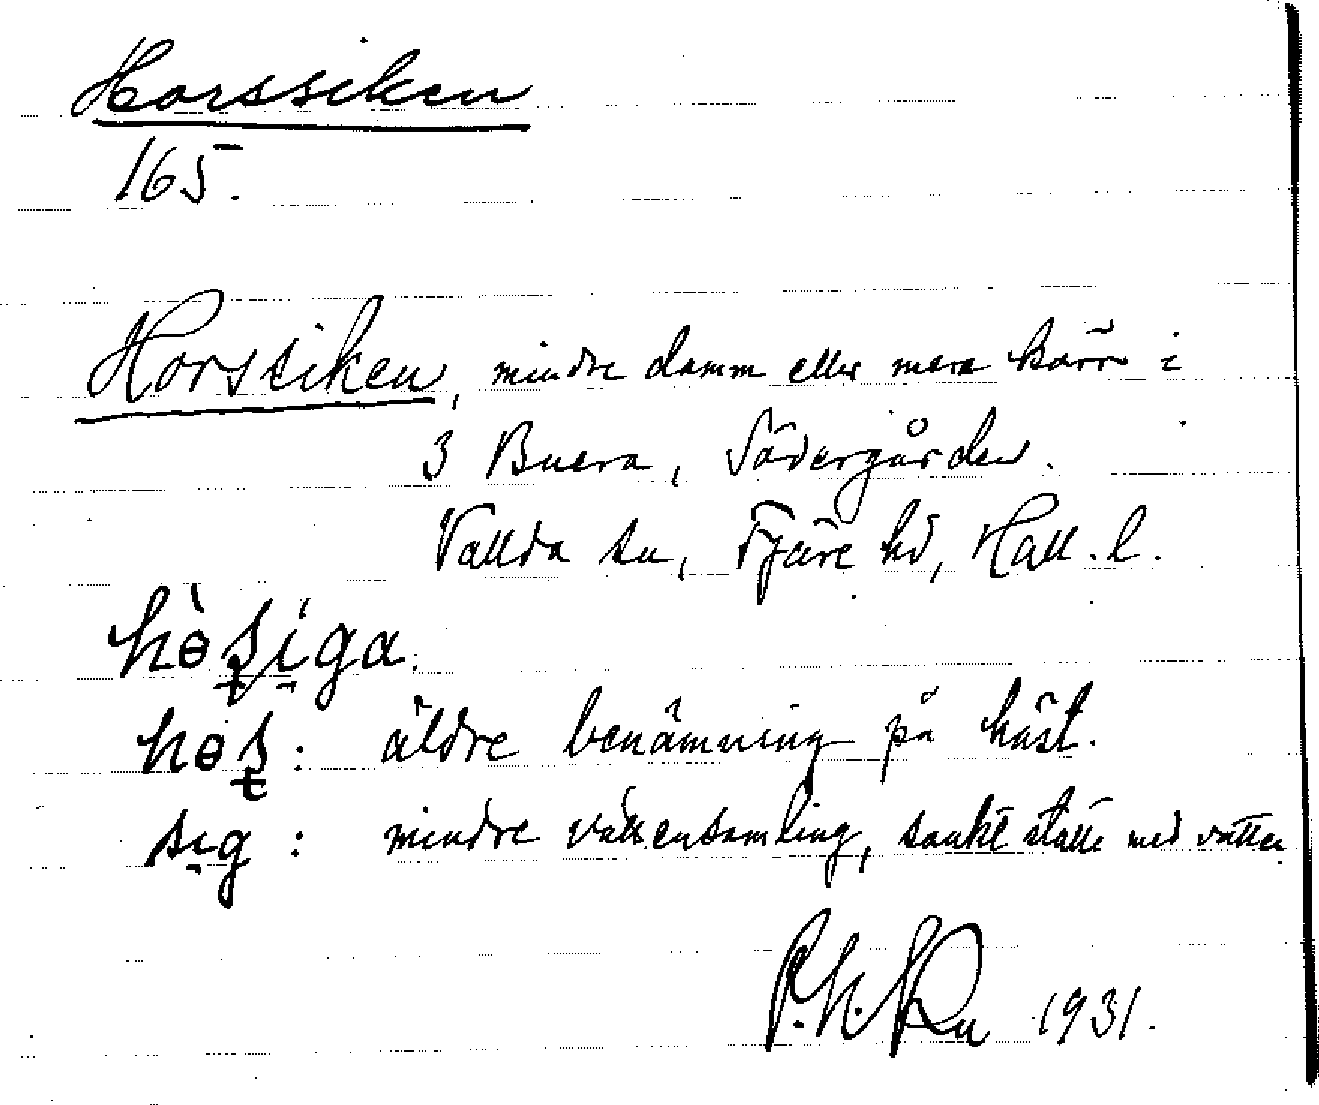 Horssiken
165.
Horssiken, mindre damm eller mera kärr i
3 Buera, Södergården.
Vallda sn, Fjäre hd, Hall. l.
hòsiga.
hɵs: äldre benämning på häst.
sig: mindre vattensamling, sankt ställe med vatten
1931.